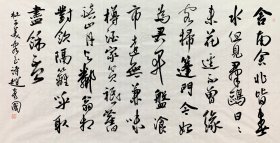 舍南舍北皆春
水但見羣鷗日々
來花徑不曾緣
客掃蓬門今始
為君開盤飧
市遠無兼味
樽酒家貧只舊
醅肯與鄰翁相
對飲隔籬呼取
盡餘杯
杜子美客至詩